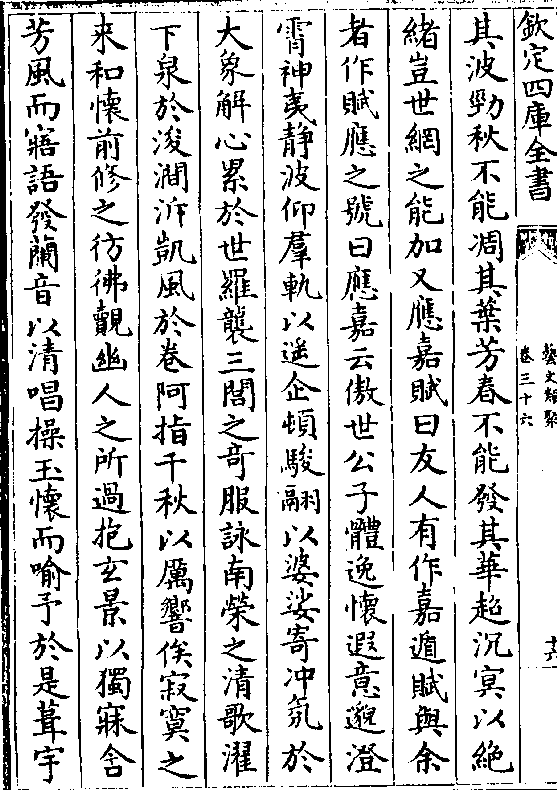 欽定四庫全書
藝文類聚
卷三十六
十六
其波勁秋不能凋其葉芳春不能發其華超沉冥以絶
緒豈世網之能加又應嘉賦曰友人有作嘉遁賦與余
者作賦應之號曰應嘉云傲世公子體逸懷遐意邈澄
霄神夷静波仰羣軌以遥企頓駿翮以婆娑寄冲氛於
大象解心累於世羅襲三閭之竒服詠南榮之清歌濯
下泉於浚澗泝凱風於卷阿指千秋以厲響俟寂寞之
来和懷前修之彷彿覿幽人之所過抱玄景以獨寐含
芳風而寤語發蘭音以清唱操玉懷而喻予於是葺宇